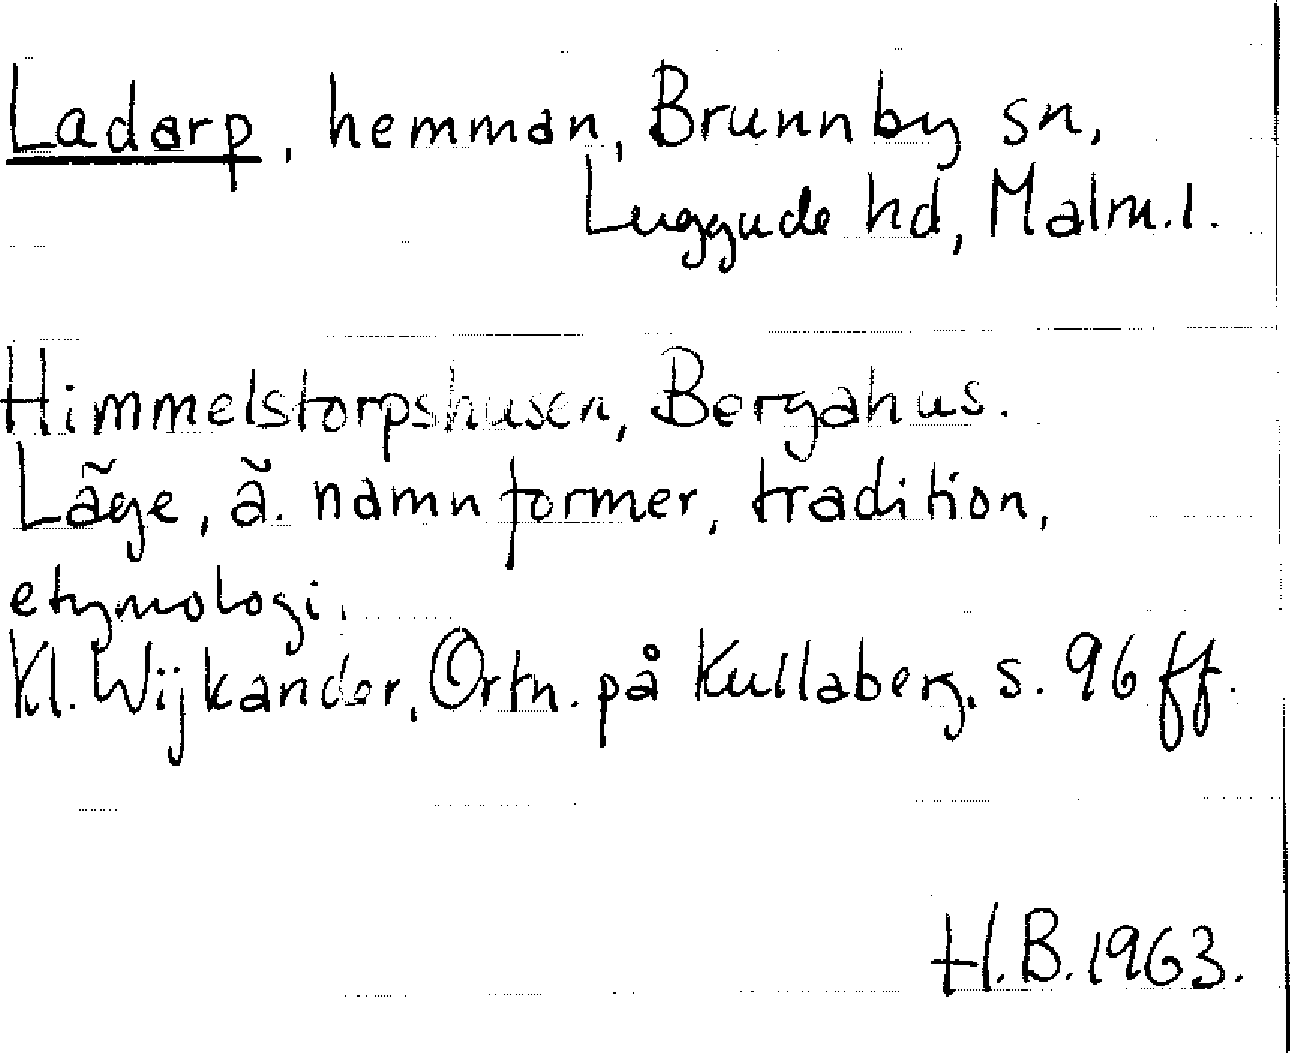 Ladarp, hemman, Brunnby sn,
Luggude hd, Malm.l.
Himmelstorpshusen, Bergahus.
Läge, ä. namnformer, tradition,
etymologi.
Kl. Wijkander, Ortn. på Kullaberg, s. 96 ff.
H.B. 1963.